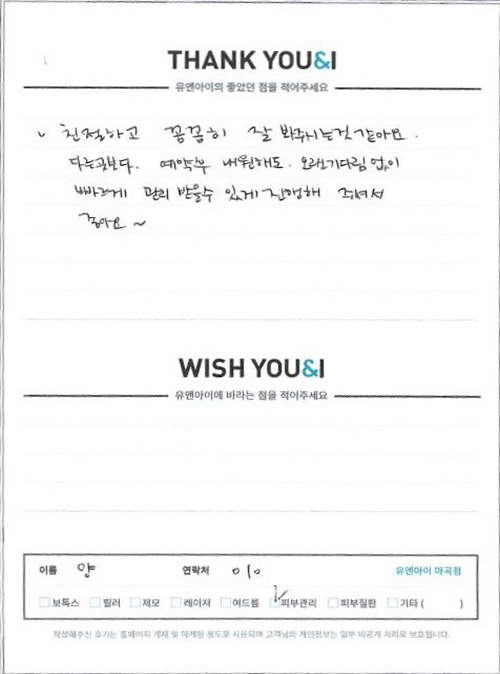 THANK YOU&I
유앤아이의 좋았던 점을 적어주세요
친절하고 꼼꼼히 잘 봐주시는것 같아요.
다는곳보다. 예약부 내원해도. 오래기다림 없이
빠르게 관리 받을수 있게 진행해 주셔서
좋아요 ~
WISH YOU&I
유앤아이에 바라는 점을 적어주세요
이름 양 연락처 010 유앤아이 마곡점
보톡스 필러 제모 레이저 여드름 피부관리 피부질환 기타 ( )
작성해주신 후기는 홈페이지 게재 및 마케팅 용도로 사용되며 고객님의 개인정보는 일부 비공개 처리로 보호됩니다.